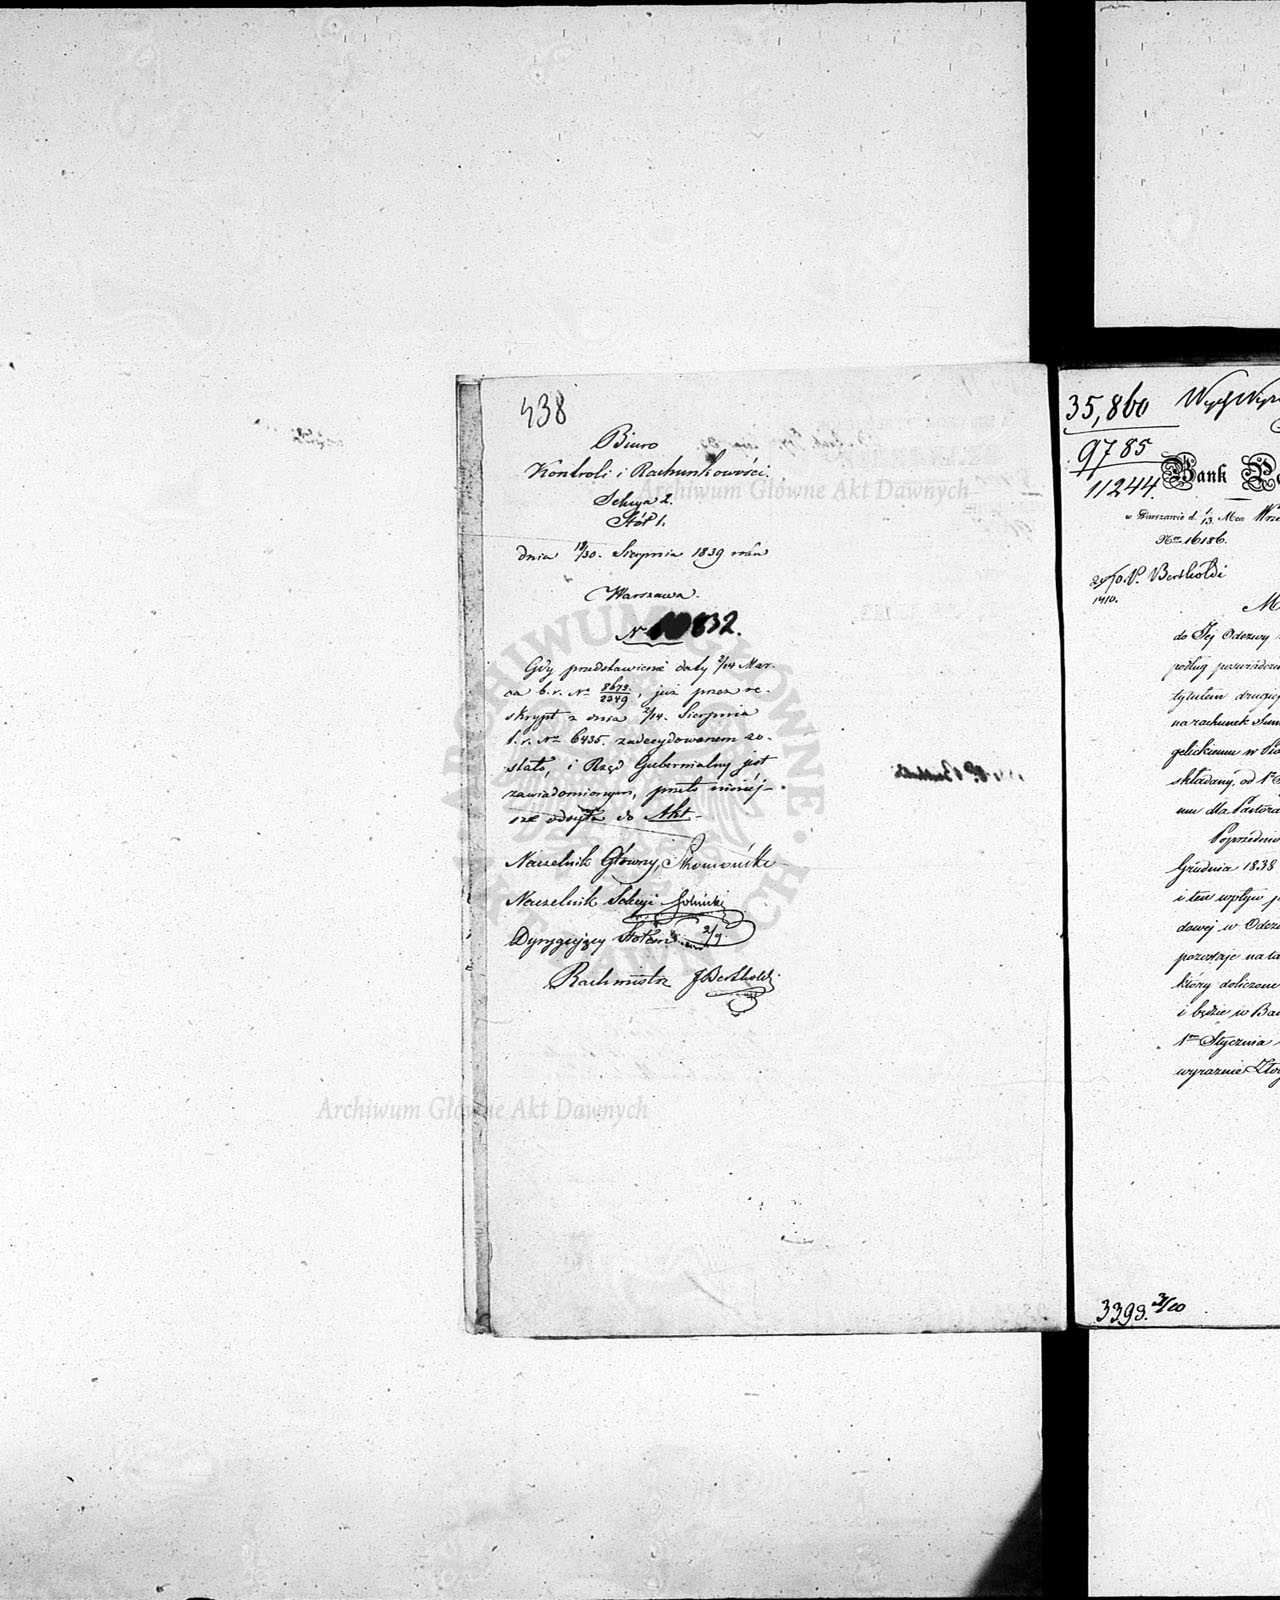 438
Biuro
Kontroli i Rachunkowości.
Sekcya 2.
Stół 1.
dnia 18/30. Sierpnia 1839 roku
Warszawa.
N 832.
Gdy przedstawienie daty 2/14 Mar-
ca b.r. No 8673./2349, już przez re-
skrypt z dnia 2/14. Sierpnia
b.r. No 6435. zadecydowanem zo-
stało, i Rząd Gubernialny jest
zawiadomionym, przeto niniej-
sze odsyła do Akt.
Naczelnik Główny,
Naczelnik Sekcyi
Dyrygujący Stołem 2/9
Rachmistrz J Bertholdi
Archiwum Główne Akt Dawnych
Archiwum Główne Akt Dawnych
ARCHIWUM GŁÓWNE AKT DAWNYCH
35,860
9785
11244.
Bank
w Warszawie d. 1/13. Mca
Nro 16186.
P. Bertholdi
1410.
do Jej Odezwy
podług
tytułem drugiej
na rachunek
gelickiemu w
składany, od 1o
mu dla Pastora
Poprzednio
Grudnia 1838
i ten wpływ
dowej w
pozostaje na
który doliczone
i będzie w
1o Stycznia
wyraźnie
3393. 3/10